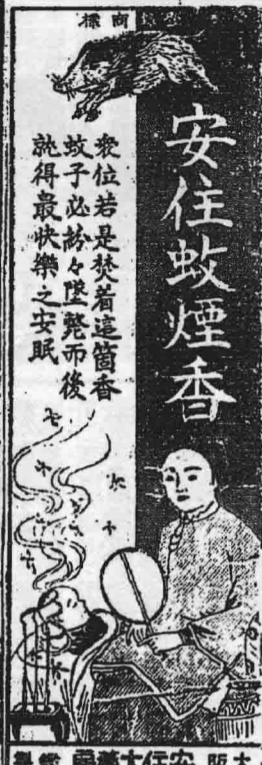 商標
安住蚊煙香
衆位若是焚着這箇香
蚊子必紛々墜斃而後
就得最快樂之安眠
大阪 安住大藥房